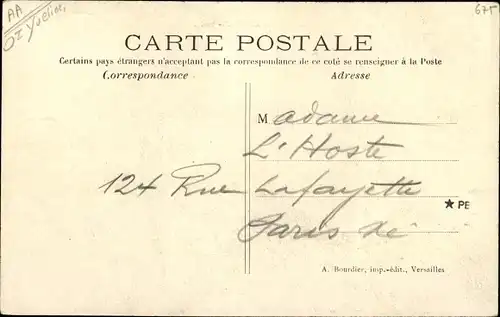 AA
Yvelines
67F
CARTE POSTALE
Certains pays étrangers n'acceptant pas la correspondance de ce coté se renseigner à la Poste
Correspondance Adresse
Madame
L'Hoste
124 Rue Lafayette
★ PE
Paris Xe
A. Bourdier, imp.-édit., Versailles